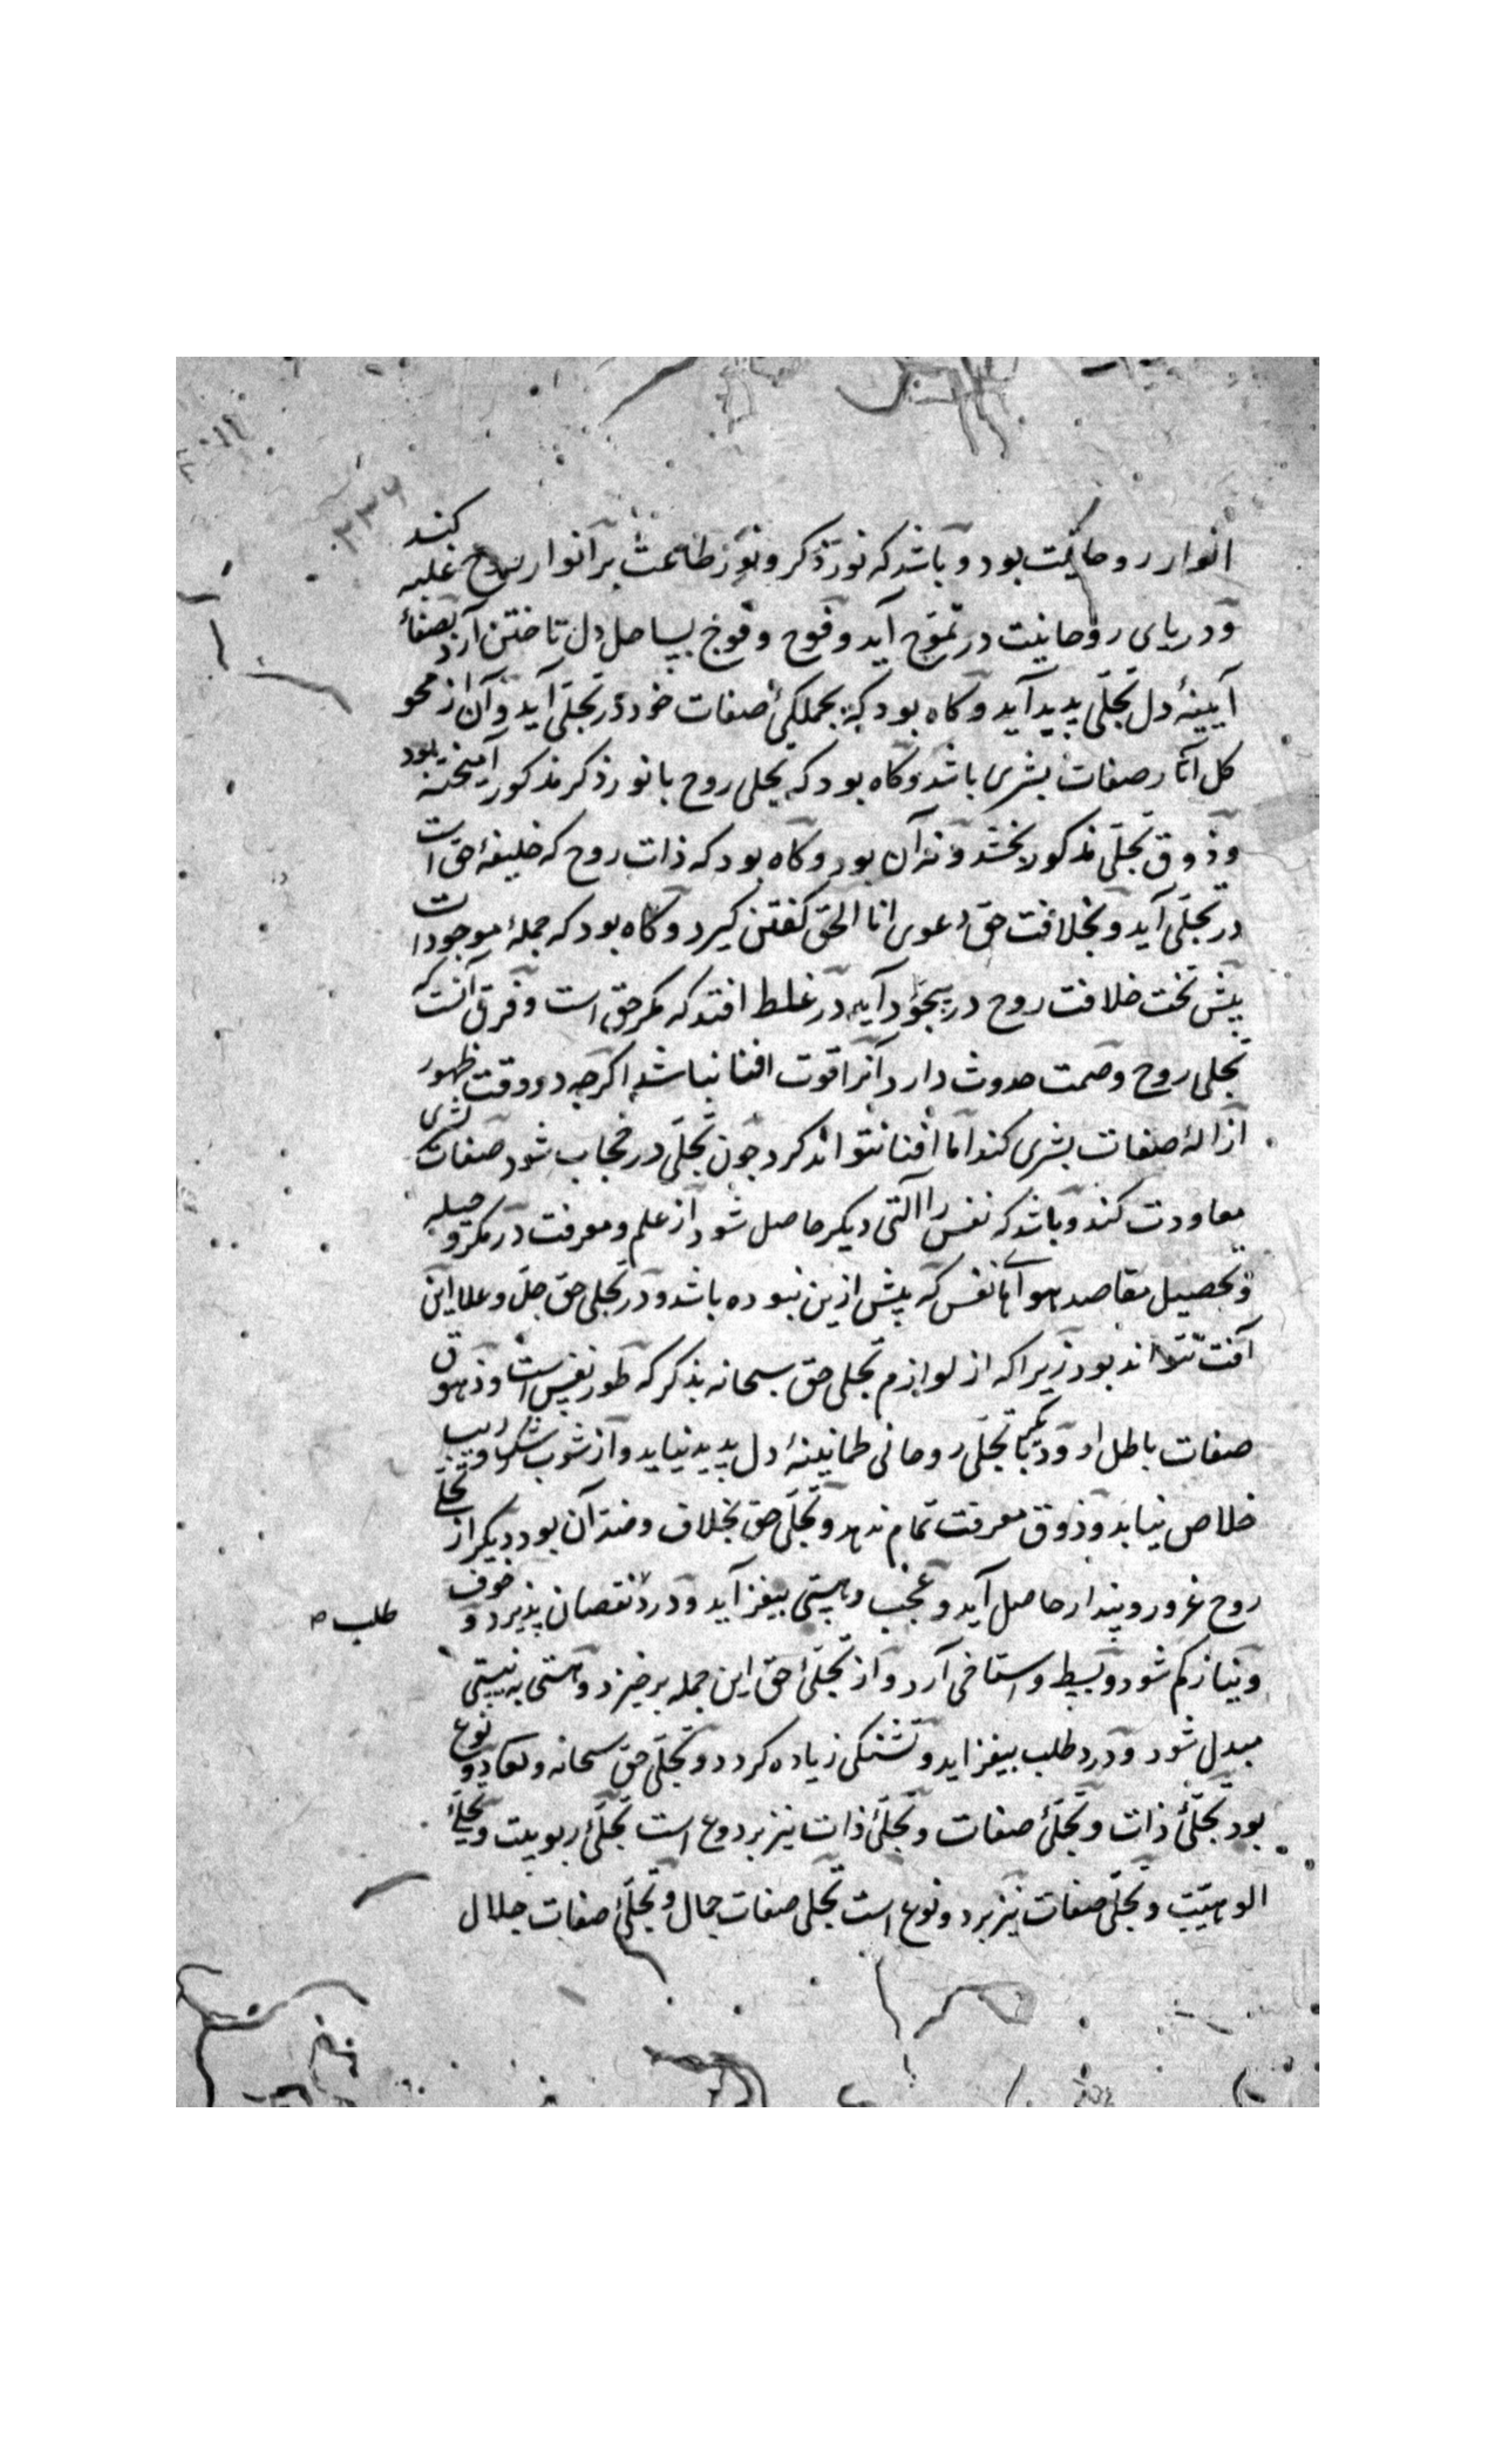 ۲۳۶
انوار روحانیت بود و باشد که نور ذکر و نور طاعت بر انوار روح غلبه کند
و دریای روحانیت در تموّج آید و فوج و فوج بساحل دل تاختن آرد بصفاء
آیینهٔ دل تجلّی پدید آید و کاه بود که بجملکیٔ صفات خود در تجلّی آید و آن از محو
کل آثار صفات بشری باشد و کاه بود که تجلی روح با نور ذکر مذکور آمیخته بود
و ذوق تجلّی مذکور بخشد و نه آن بود و کاه بود که ذات روح که خلیفهٔ حق است
در تجلّی آید و بخلافت حق دعوی انا الحق کفتن کیرد و کاه بود که جملهٔ موجودات
پیش تخت خلافت روح در سجود آید در غلط افتد که مکر حق است و فرق آنست که
تجلی روح وصمت حدوث دارد آنرا قوت افنا نباشد اکرچه در وقت ظهور
ازالهٔ صفات بشری کند اما افنا نتواند کرد چون تجلّی در حجاب شود صفات بشری
معاودت کند و باشد که نفس را آلتی دیکر حاصل شود از علم و معرفت در مکر و حیله
و تحصیل مقاصد هوای نفس که پیش ازین نبوده باشد و در تجلی حق جلّ و علا این
آفت نتواند بود زیرا که از لوازم تجلی حق سبحانه تدکدک طور نفس است و زهوق
صفات باطل او و دیکر با تجلّی روحانی طمانینهٔ دل پدید نیاید و از شوب شک و ریب
خلاص نیابد و ذوق معرفت تمام ندهد و تجلّی حق بخلاف و ضد آن بود دیکر از تجلی
روح غرور و پندار حاصل آید و عجب و هستی بیفزاید و درد نقصان پذیرد و خوف
طلب صح
و نیاز کم شود و بسط و استاخی آرد و از تجلّیٔ حق این جمله برخیزد و هستی به نیستی
مبدل شود و درد طلب بیفزاید و تشنکی زیاده کردد و تجلّی حق سبحانه و تعالی دو نوع
بود تجلّیٔ ذات و تجلّیٔ صفات و تجلّیٔ ذات نیز بر دو نوع است تجلّیٔ ربوبیت و تجلّیٔ
الوهیّت و تجلّی صفات نیز بر دو نوع است تجلی صفات جمال و تجلّیٔ صفات جلال